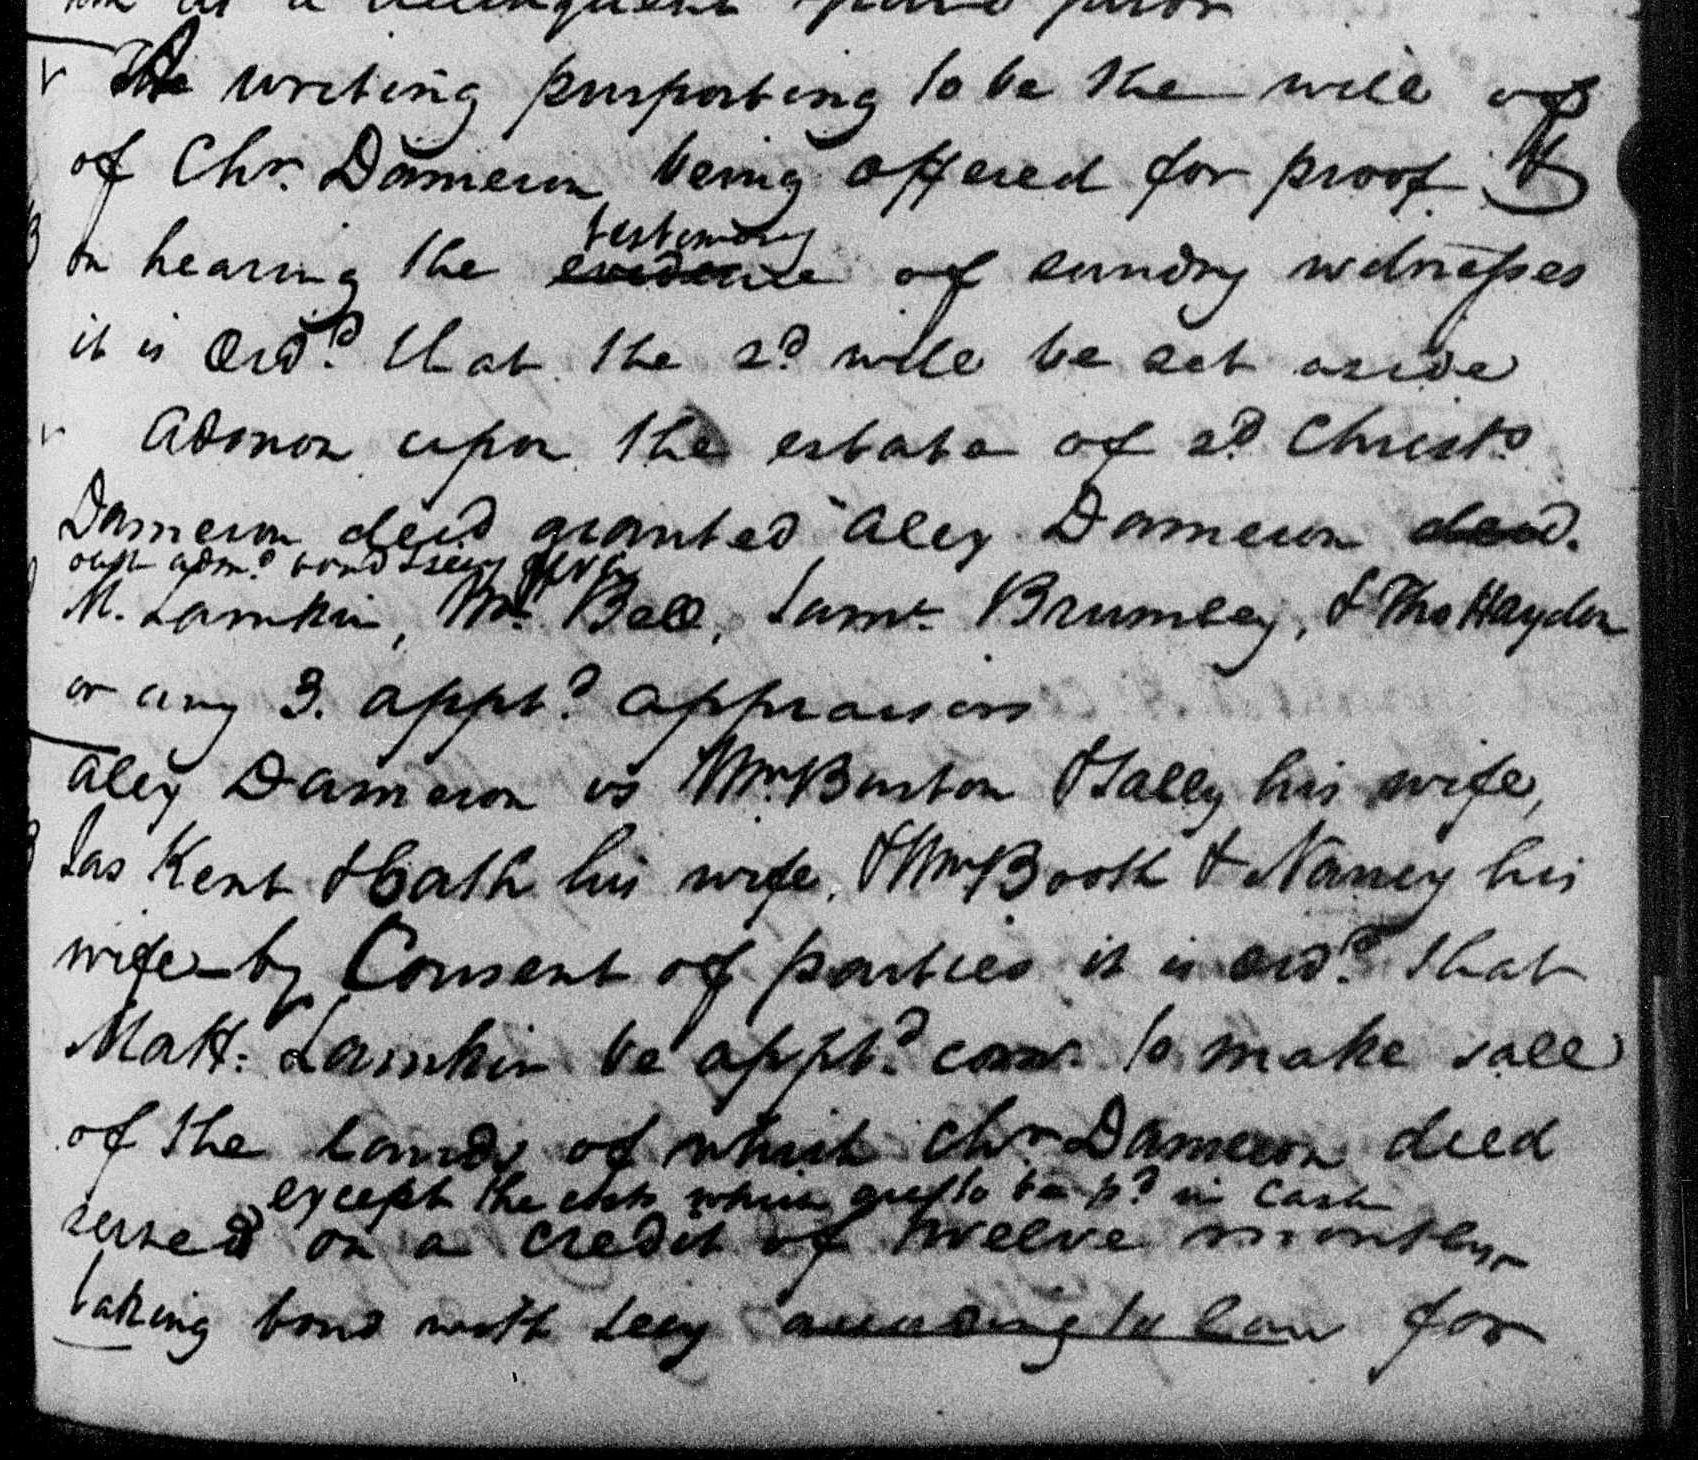 as a delinquent prior
The writing purporting to be the will of
of Chr. Dameron being offered for proof &
on hearing the evidence testimony of sundry witnesses
it is Ord.d that the s.d will be set aside
Admon upon the estate of s.d Christo
Dameron decd granted Aley Dameron decd.
oath adm.d bond & secy given
M. Lamkin, Wm. Bell, Saml. Brumley, & Tho Haydon
or any 3. appt.d appraisors
Aley Dameron vs Wm. Burton & Sally his wife,
Jas Kent & Cath his wife, & Wm Booth & Nancy his
wife by Consent of parties it is ord.d that
Matt: Lamkin be appt.d comr. to make sale
of the lands of which Chr Dameron died
except the costs which are to be p.d in Cash
seized on a credit of twelve months,
taking bond with secy according to law for